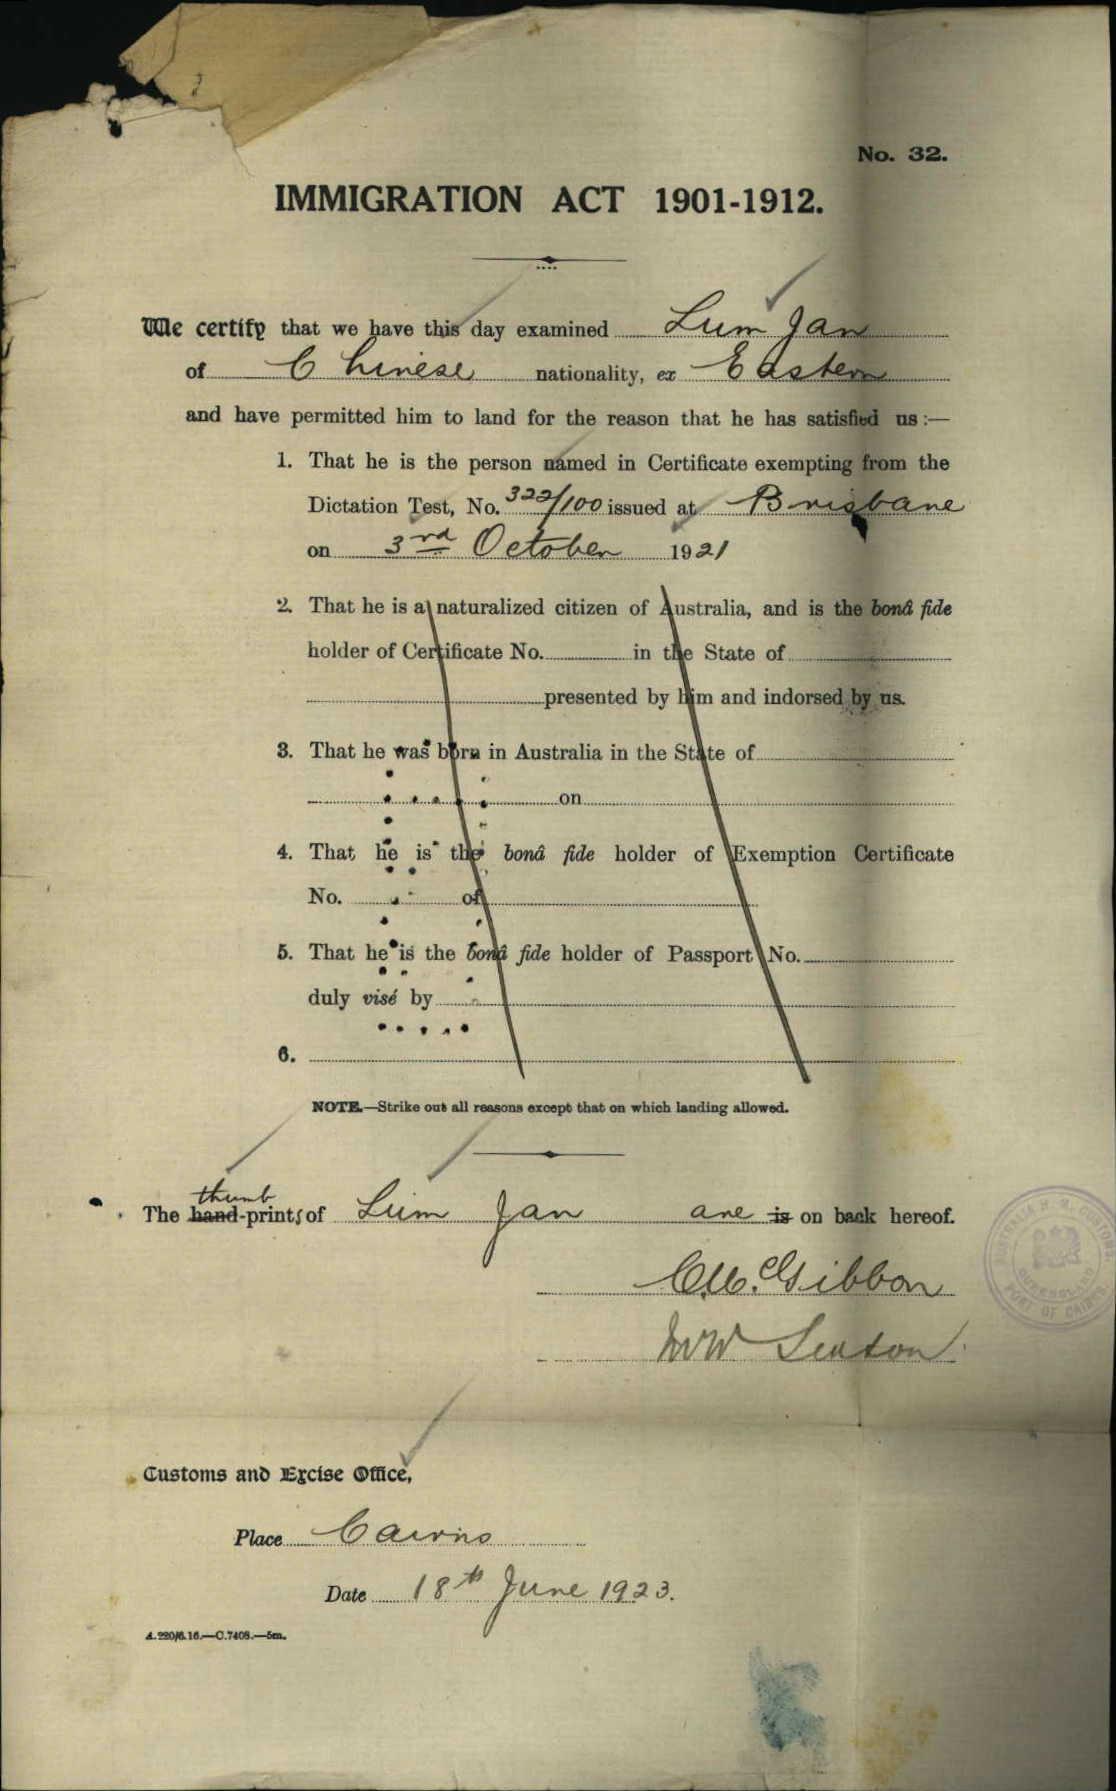 No. 32.
IMMIGRATION ACT 1901-1912.
We certify that we have this day examined Lum Jan
of Chinese nationality, ex Eastern
and have permitted him to land for the reason that he has satisfied us :—
1. That he is the person named in Certificate exempting from the
Dictation Test, No. 322/100 issued at Brisbane
on 3rd October 1921
2. That he is a naturalized citizen of Australia, and is the bonâ fide
holder of Certificate No. in the State of
presented by him and indorsed by us.
3. That he was born in Australia in the State of
on
4. That he is the bonâ fide holder of Exemption Certificate
No. of
5. That he is the bonâ fide holder of Passport No.
duly visé by
6.
NOTE.—Strike out all reasons except that on which landing allowed.
thumb
The hand-prints of Lum Jan are is on back hereof.
Gibbon
Customs and Excise Office,
Place Cairns
Date 18th June 1923.
A.220/6.16.—C.7408.—5m.
QUEENSLAND
PORT OF CAIRNS